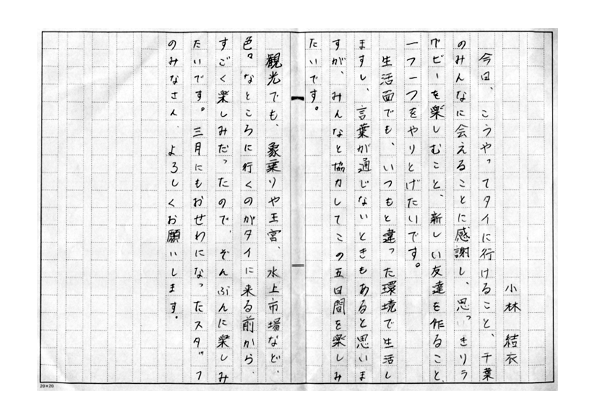 小林 結衣
今回、こうやってタイに行けること、千葉
のみんなに会えることに感謝し、思っきりラ
グビーを楽しむこと、新しい友達を作ること、
一つ一つをやりとげたいです。
生活面でも、いつもと違った環境で生活し
ますし、言葉が通じないときもあると思いま
すが、みんなと協力してこの五日間を楽しみ
たいです。
観光でも、象乗りや王宮、水上市場など、
色々なところに行くのがタイに来る前から、
すごく楽しみだったので、ぞんぶんに楽しみ
たいです。三月にもおせわになったスタッフ
のみなさん、よろしくお願いします。
20×20